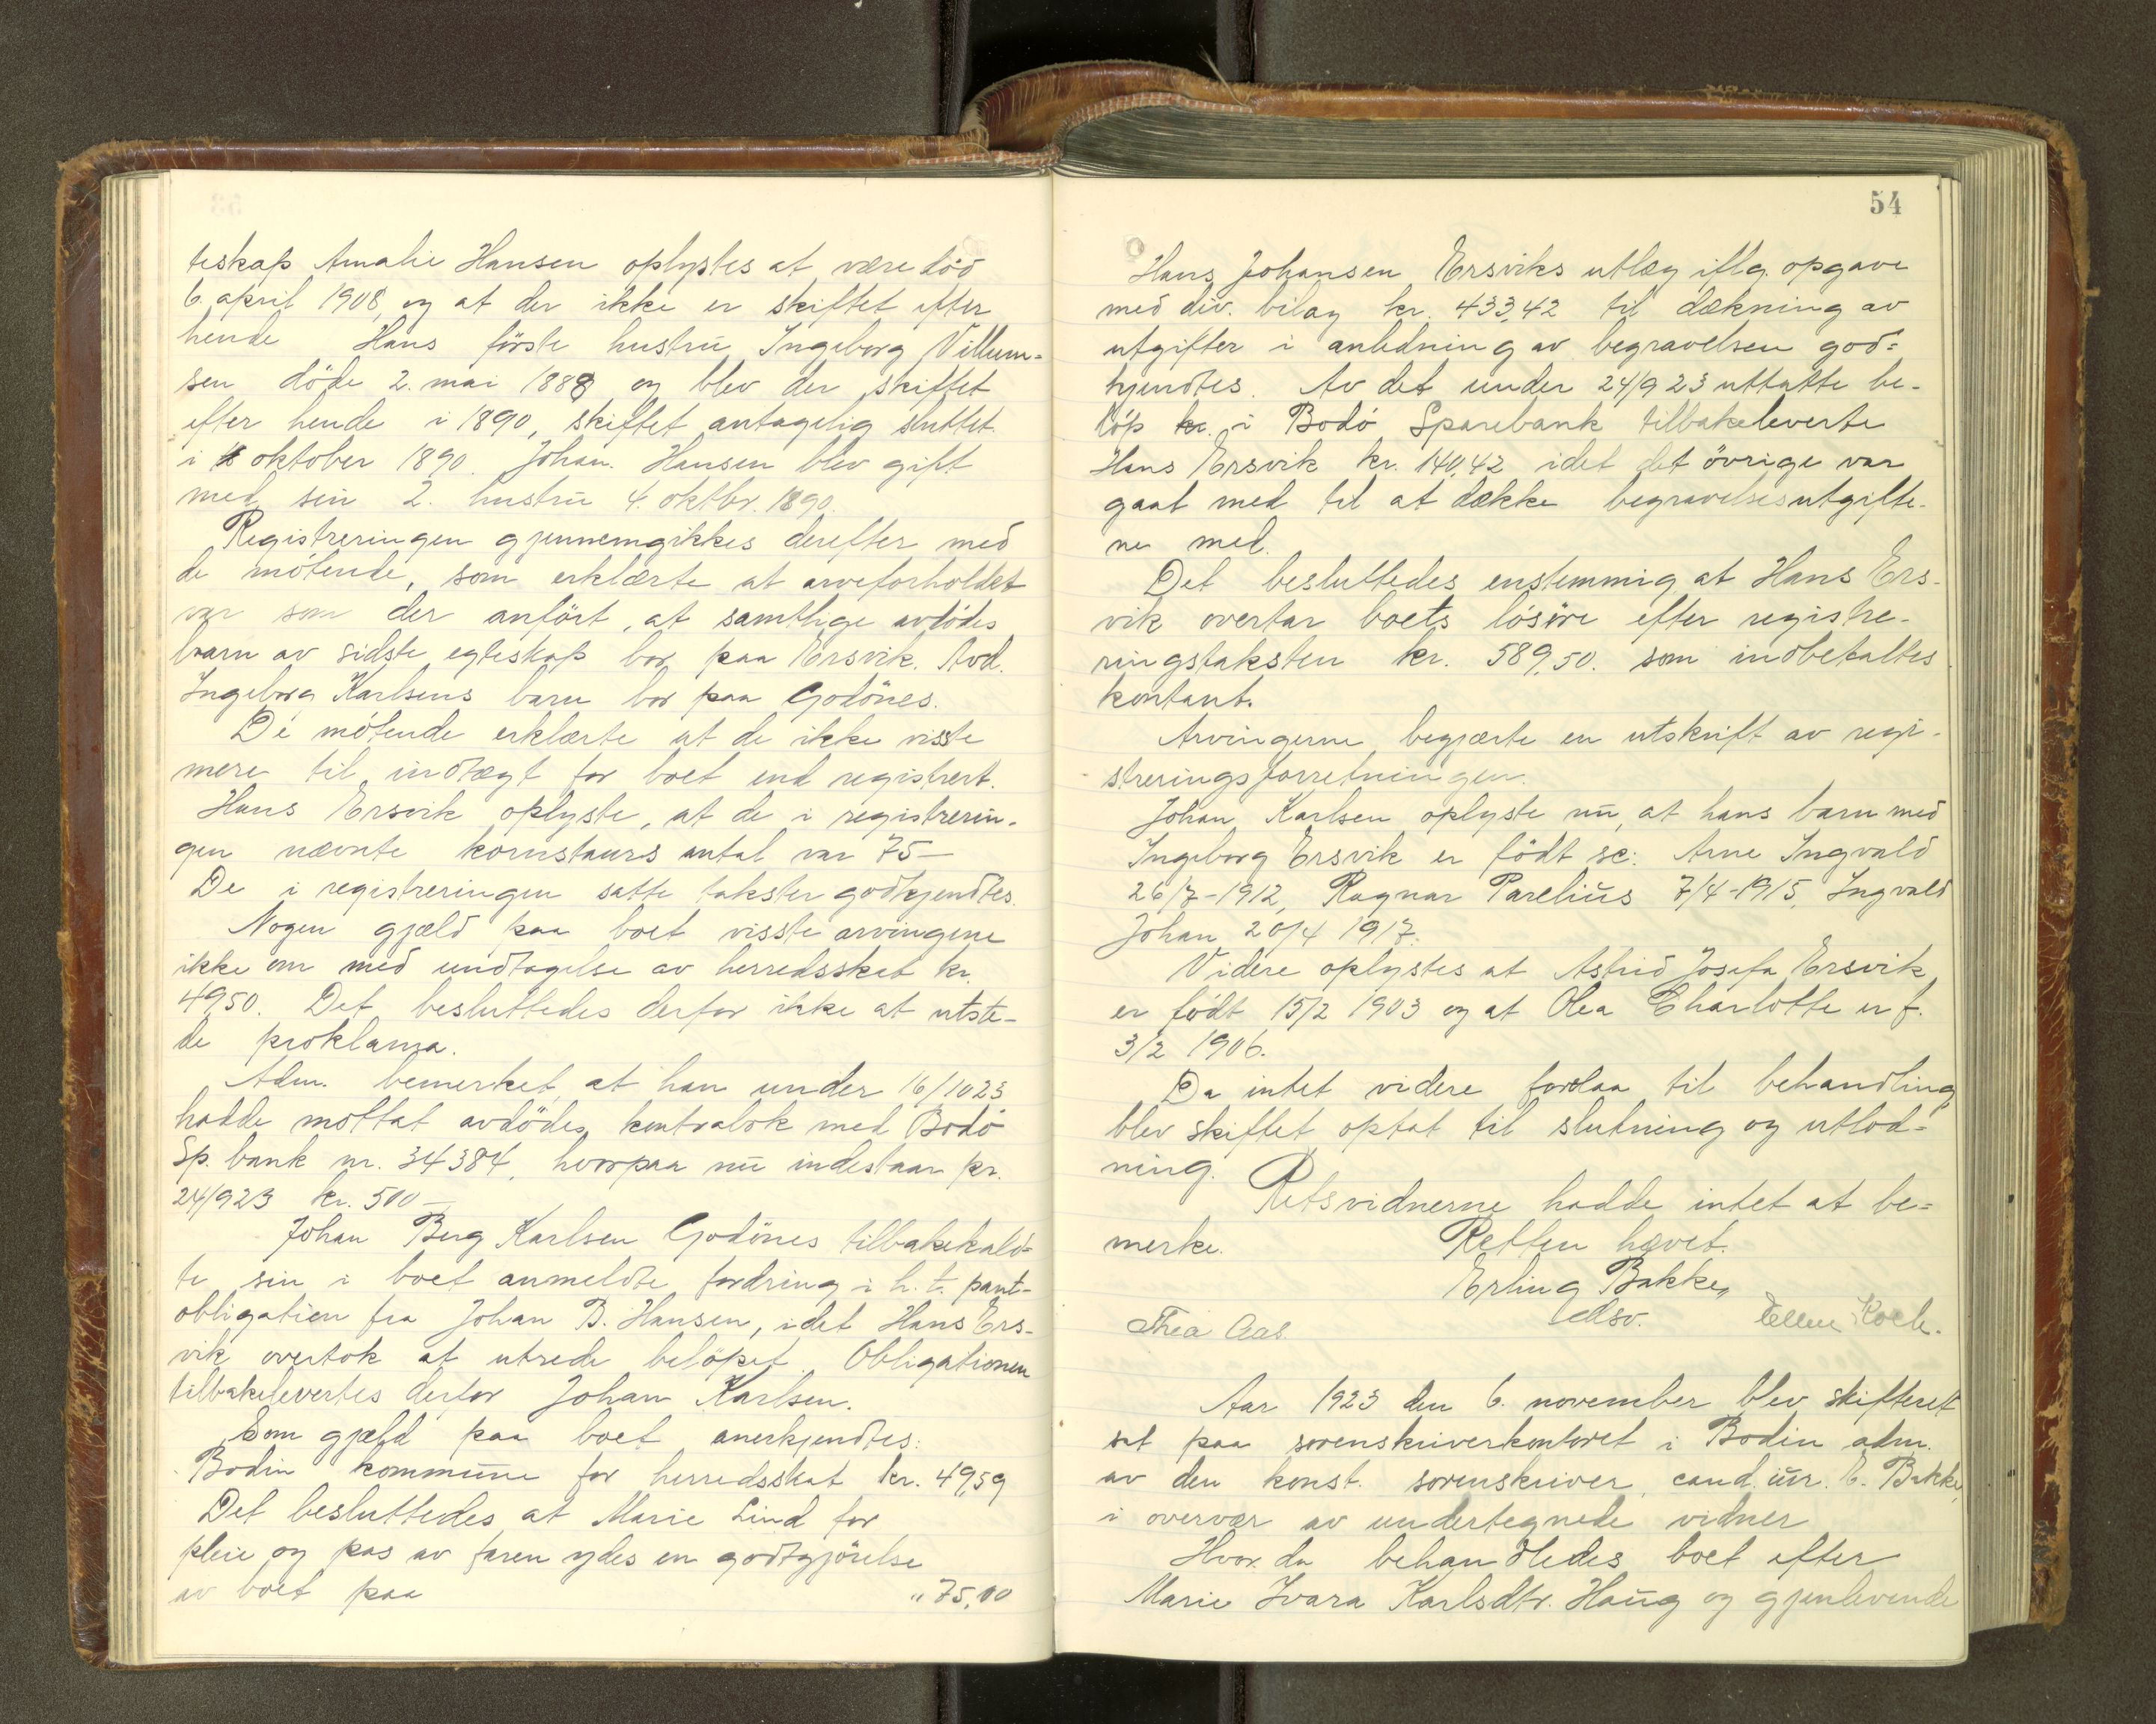 teskap Amalie Hansen oplystes at være død
6. april 1908, og at der ikke er skiftet efter
hende Hans første hustru Ingeborg Villum=
sen døde 2. mai 1888 og blev der skiftet
efter hende i 1890, skiftet antagelig sluttet
i oktober 1890. Johan. Hansen blev gift
med sin 2. hustru 4. oktbr. 1890.
Registreringen gjennemgikkes derefter med
de møtende, som erklærte at arveforholdet
var som der anført, at samtlige avdødes
barn av sidste egteskap bor paa Ersvik. Avd.
Ingeborg Karlsens barn bor paa Godønes.
De møtende erklærte at de ikke visste
mere til indtægt for boet end registrert.
Hans Ersvik oplyste, at de i registrerin-
gen nævnte kornstaurs antal var 75—
De i registreringen satte takster godkjendtes.
Nogen gjæld paa boet visste arvingene
ikke om med undtagelse av herredsskat kr.
49,50. Det besluttedes derfor ikke at utste-
de proklama.
Adm. bemerket, at han under 16/10 23
hadde mottat avdødes kontrabok med Bodø
Sp. bank nr. 34384, hvorpaa nu indestaar pr.
24/9 23 kr. 500—
Johan Berg Karlsen Godønes tilbakekald-
te sin i boet anmeldte fordring i h. t. pant-
obligation fra Johan B. Hansen, idet Hans Ers-
vik overtok at utrede beløpet. Obligationen
tilbakelevertes derfor Johan Karlsen.
Som gjæld paa boet anerkjendtes:
Bodin kommune for herredsskat kr. 49,59
Det besluttedes at Marie Lind for
pleie og pas av faren ydes en godtgjørelse
av boet paa " 75,00
54
Hans Johansen Ersviks utlæg iflg. opgave
med div. bilag kr. 433,42 til dækning av
utgifter i anledning av begravelsen god=
kjendtes. Av det under 24/9 23 uttatte be-
løp kr. i Bodø Sparebank tilbakeleverte
Hans Ersvik kr. 140,42 idet det øvrige var
gaat med til at dække begravelsesutgifte-
ne med.
Det besluttedes enstemmig at Hans Ers-
vik overtar boets løsøre efter registre-
ringstaksten kr. 589,50. som indbetaltes
kontant.
Arvingerne begjærte en utskrift av regi-
streringsforretningen.
Johan Karlsen oplyste nu, at hans barn med
Ingeborg Ersvik er født sc: Arne Ingvald
26/7-1912, Ragnar Parelius 7/4-1915, Ingvald
Johan 20/4 1917.
Videre oplystes at Astrid Josefa Ersvik
er født 15/2 1903 og at Olea Charlotte er f.
3/2 1906.
Da intet videre forelaa til behandling
blev skiftet optat til slutning og utlod=
ning.
Retsvidnerne hadde intet at be=
merke. Retten hævet.
Erling Bakke,
edsv.
Thea Aas. Ellen Koch.
Aar 1923 den 6. november blev skifteret
sat paa sorenskriverkontoret i Bodin adm.
av den konst. sorenskriver, cand. jur. E. Bakke,
i overvær av undertegnede vidner
Hvor da behandledes boet efter
Marie Ivara Karlsdtr. Haug og gjenlevende